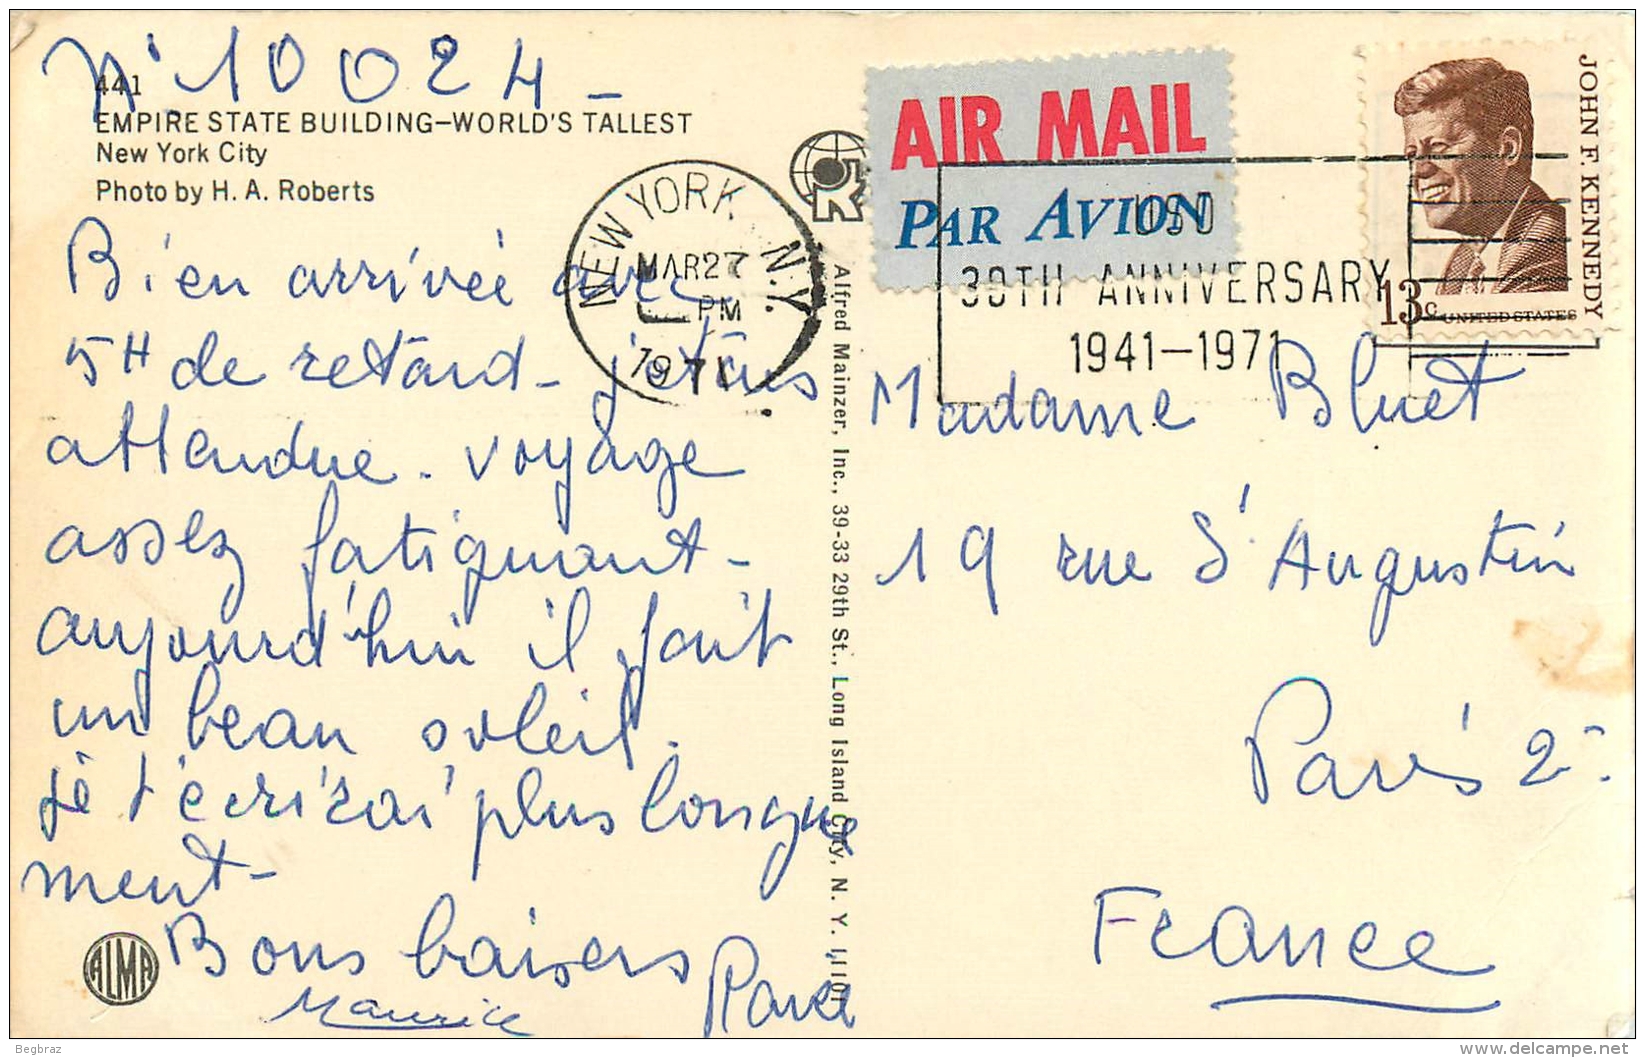 N° 10024 -
441
EMPIRE STATE BUILDING—WORLD'S TALLEST
New York City
Photo by H. A. Roberts
Bien arrivée avec
5H de retard - j'étais
attendue. voyage
assez fatiguant -
aujourd'hui il fait
un beau soleil.
je t'écrirai plus longue
ment -
Bons baisers
Maurice
ALMA
NEW YORK, N.Y.
MAR 27
PM
1971
Alfred Mainzer, Inc., 39-33 29th St., Long Island City, N. Y. 11101
AIR MAIL
PAR AVION
USO
30TH ANNIVERSARY
1941-1971
JOHN F. KENNEDY
13c
UNITED STATES
Madame Bluet
19 rue St Augustin
Paris 2e
France
Begbraz
www.delcampe.net